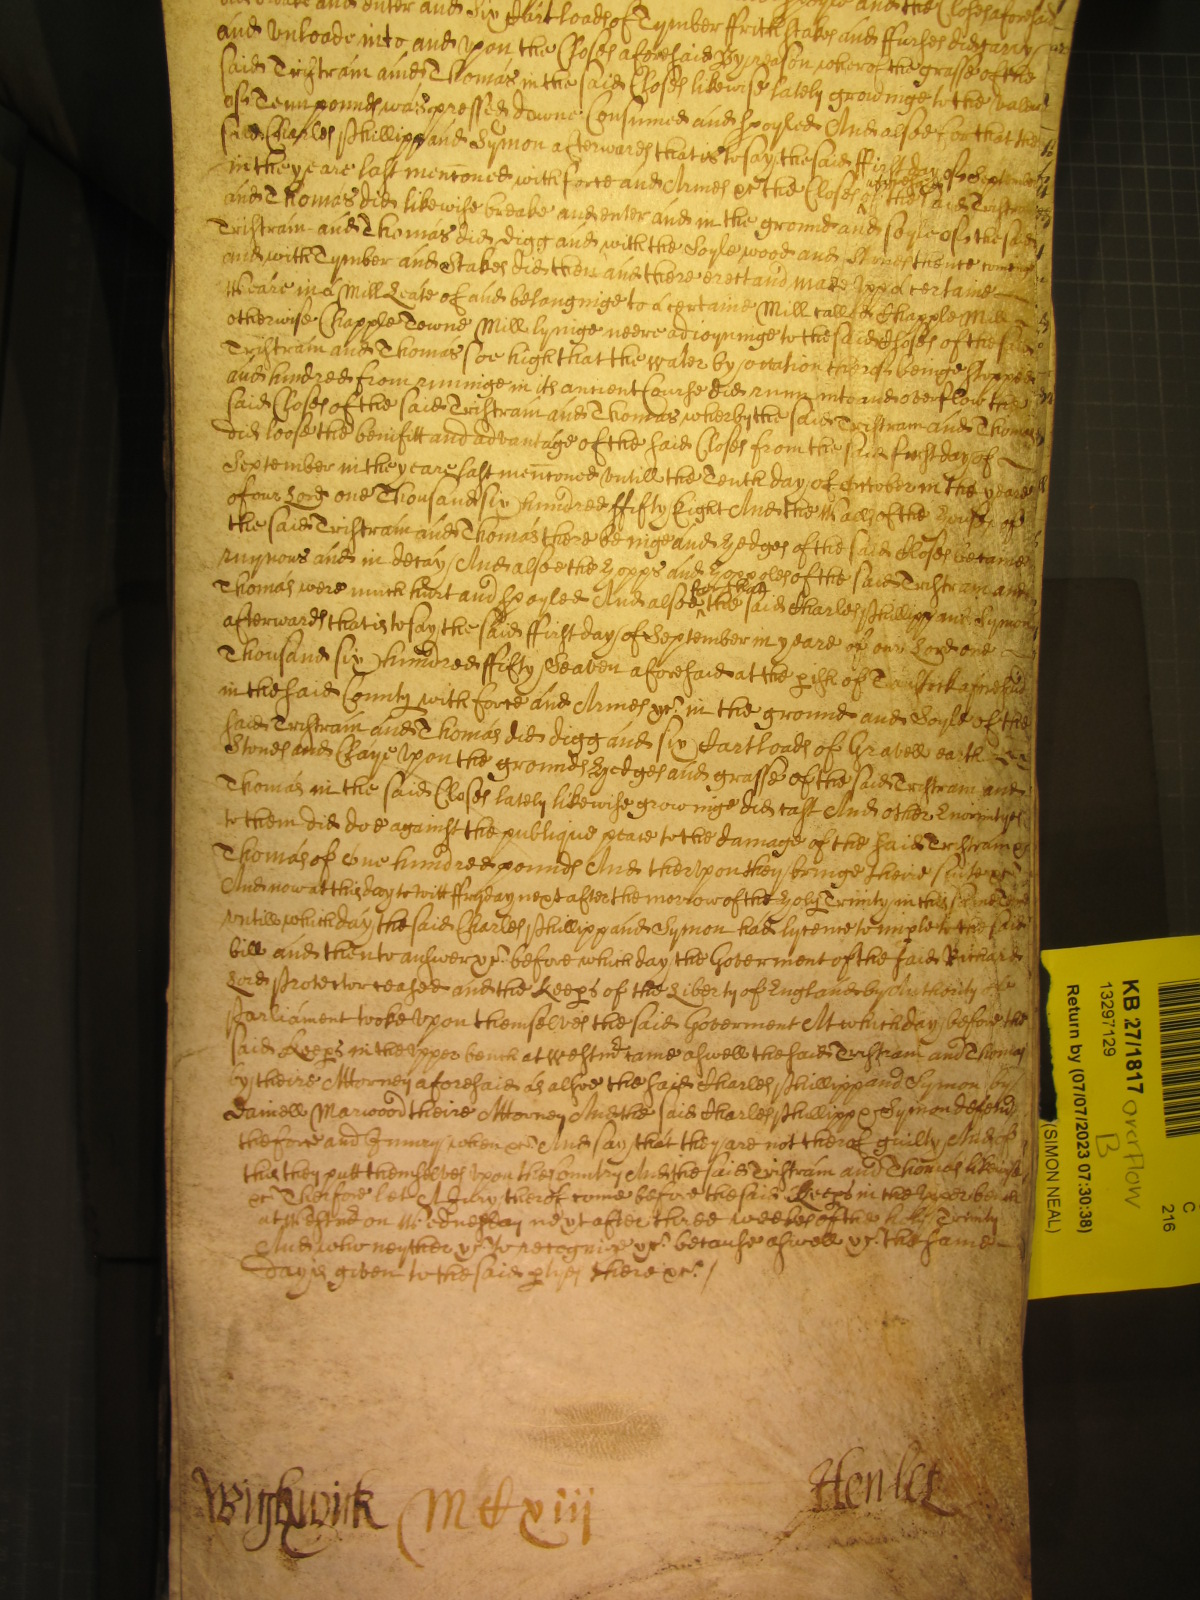 and enter and Six Cart loads of Tymber ffrith Stakes and ffurses did carry
and unloade into and upon the Closes aforesaid By reason wherof the grasse of the
said Tristram and Thomas in the said Closes likewise lately growinge to the value
of Tenn pounds was pressed downe Consumed and spoyled And alsoe for that the
said Charles Phillipp and Symon afterwards that is to say the said ffirst day of September
in the yeare last mentoned with force and Armes &c the Closes of the said Tristram
and Thomas did likewise breake and enter and in the ground and soyle of the said
Tristram and Thomas did digg and with the Soyle wood and Stones thence comeing
and with Tymber and Stakes did then and there erect and make upp a certaine
Weare in a Mill Leate of and belonginge to a certaine Mill called Chapple Mill
otherwise Chapple Towne Mill lyinge neere adioyninge to the said Closes of the said
Tristram and Thomas soe high that the water by occation therof beinge stopped
and hindred from runninge in its antient Course did runn into and overflow the
said Closes of the said Tristram and Thomas wherby the said Tristram and Thomas
did loose the benifitt and advantage of the said Closes from the said first day of
September in the yeare last mentoned untill the Tenth day of October in the yeare
of our Lord one Thousand six hundred ffifty Eight And the Walls of the House of
the said Tristram and Thomas there beinge and Hedges of the said Closes became
ruynous and in decay And alsoe the Hopps and Hoppoles of the said Tristram and
Thomas were much hurt and spoyled And alsoe for that the said Charles Phillipp and Symon
afterwards that is to say the said ffirst day of September in yeare of our Lord one
Thousand six hundred ffifty Seaven aforesaid at the p'ish of Tavistock aforesaid
in the said County with force and Armes &c in the ground and Soyle of the
said Tristram and Thomas did digg and six Cart loads of Gravell earth
Stones and Claye upon the grounds Hedges and grasse of the said Tristram and
Thomas in the said Closes lately likewise growinge did cast And other Enormityes
to them did doe against the publique peace to the damage of the said Tristram &
Thomas of one hundred pounds And therupon they bringe theire suite &c
And now at this day to witt ffryday next after the morrow of the Holy Trinity in this same Terme
untill which day the said Charles Phillipp and Symon had lycence to imple to the said
bill and then to answer &c before which day the Goverment of the said Richard
Lord Protector ceased and the Keep's of the Liberty of England by Authority of
Parliament tooke upon themselves the said Goverment At which day before the
said Keep's in the Upper bench at Westm' came aswell the said Tristram and Thomas
by theire Attorney aforesaid as alsoe the said Charles Phillipp and Symon by
Daniell Marwood theire Attorney And the said Charles Phillipp & Symon defend
the force and Iniury when &c And say that they are not therof guilty And of
this they putt themselves upon the Country And the said Tristram and Thomas likewise
&c Therfore let A Jury therof come before the said Keep's in the Upper bench
at Westm' on Wednesday next after three weekes of the holy Trinity
And who neyther &c to recognize &c because aswell &c the same
day is given to the said p'tyes there &c
Wightwick Mlxiii Henley
KB 27/1817 overflow
13297129 B
Return by (07/07/2023 07:30:38)
(SIMON NEAL)
C
216